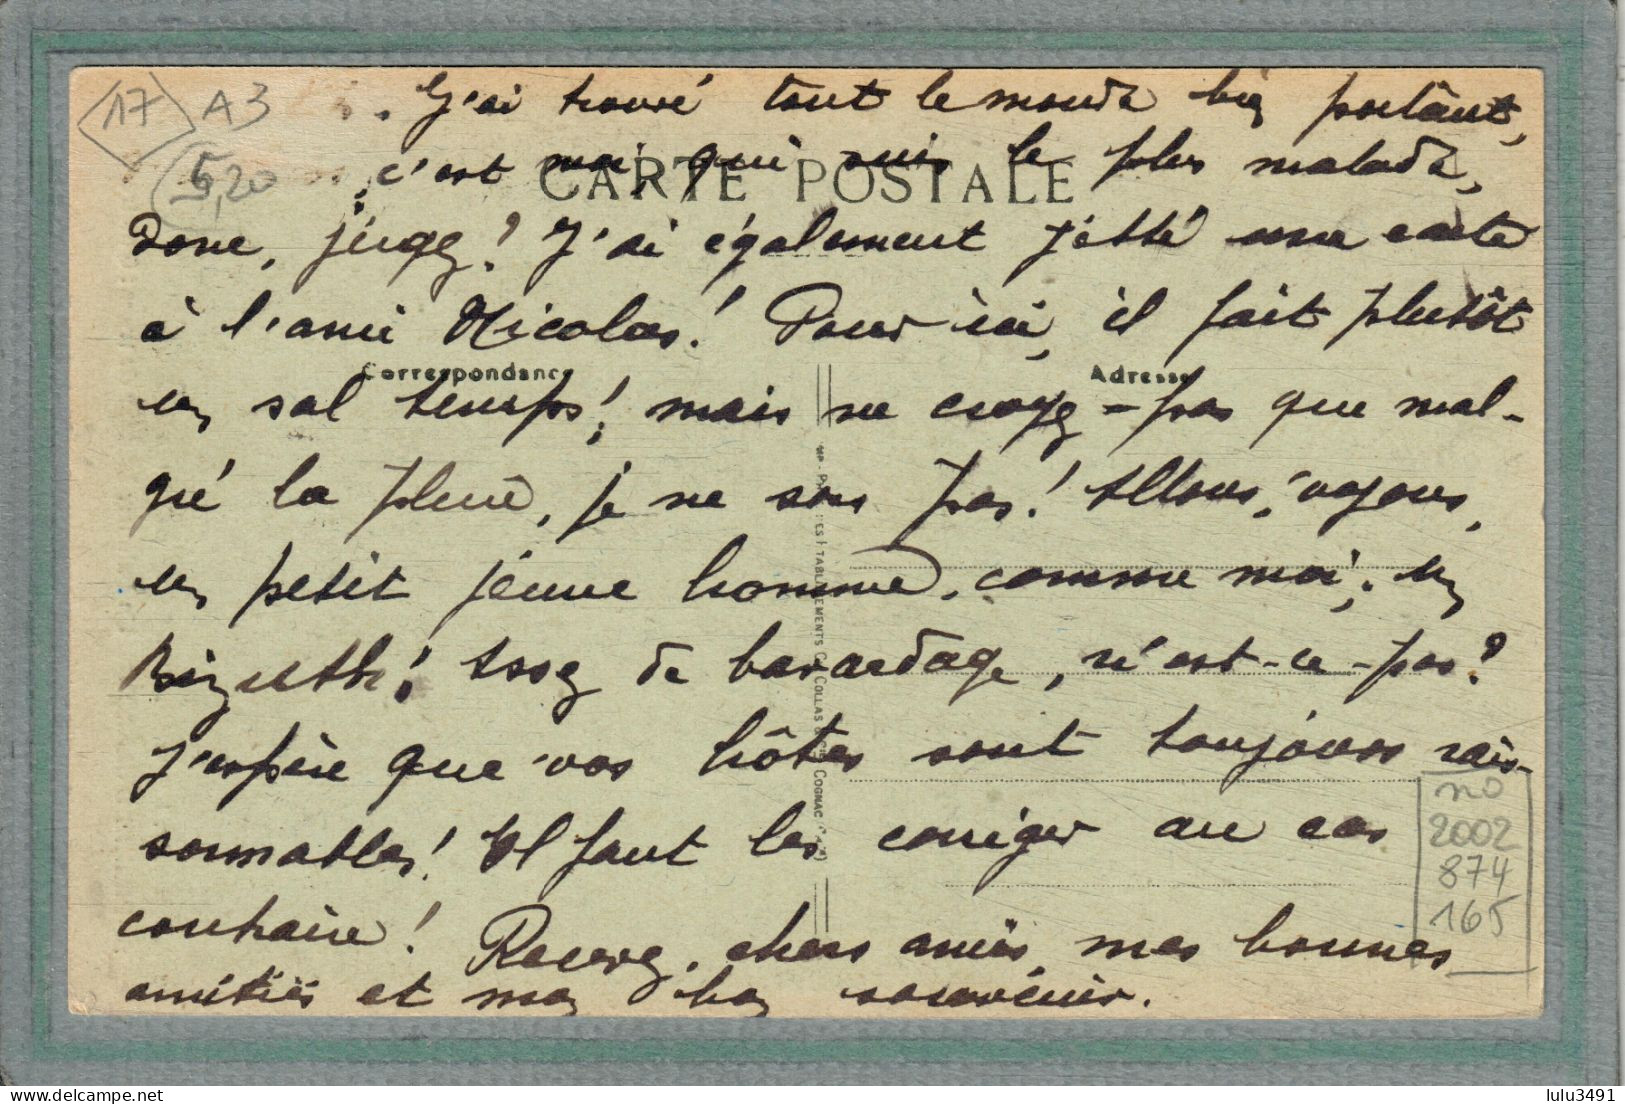 17 A3
5,20
J'ai trouvé tout le monde bien portant,
c'est moi qui suis le plus malade,
CARTE POSTALE
Donc, jugez! J'ai également jetté une carte
à l'ami Nicolas! Pour ici, il fait plutôt
Correspondance
Adresse
un sal temps! mais ne croyez-pas que mal-
gré la pluie, je ne sors pas! Allons, voyons,
un petit jeune homme, comme moi; un
Bizuth! Assez de bavardage, n'est-ce-pas?
J'espère que vos hôtes sont toujours rais-
sonnables! Il faut les corriger au cas
contraire! Recevez, chers amis, mes bonnes
amitiés et mon bon souvenir.
ÉTABLISSEMENTS COLLAS COGNAC
no
2002
874
165
lulu3491